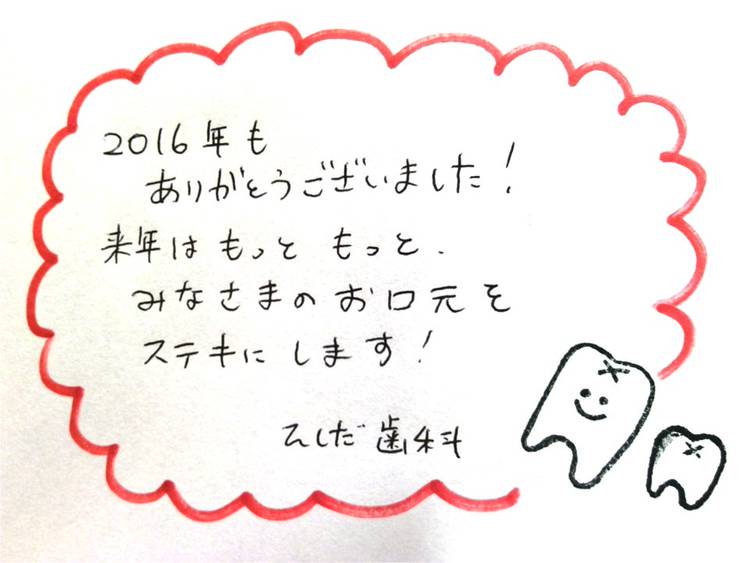 2016年も
ありがとうございました！
来年は もっと もっと、
みなさまの お口元を
ステキに します！
えしだ歯科